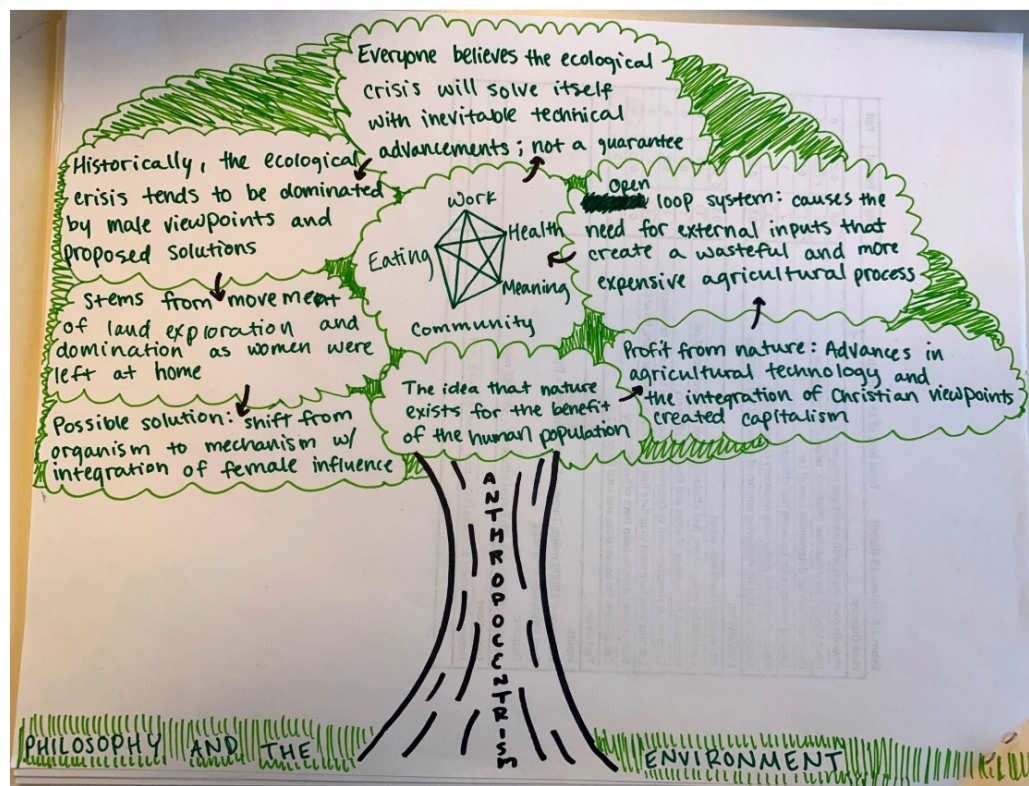 Everyone believes the ecological
crisis will solve itself
with inevitable technical
advancements; not a guarantee
Historically, the ecological
crisis tends to be dominated
by male viewpoints and
proposed solutions
Stems from movement
of land exploration and
domination as women were
left at home
Possible solution: shift from
organism to mechanism w/
integration of female influence
Work
Health
Eating
Meaning
Community
open
loop system: causes the
need for external inputs that
create a wasteful and more
expensive agricultural process
Profit from nature: Advances in
agricultural technology and
the integration of Christian viewpoints
created capitalism
The idea that nature
exists for the benefit
of the human population
ANTHROPOCENTRISM
PHILOSOPHY AND THE ENVIRONMENT